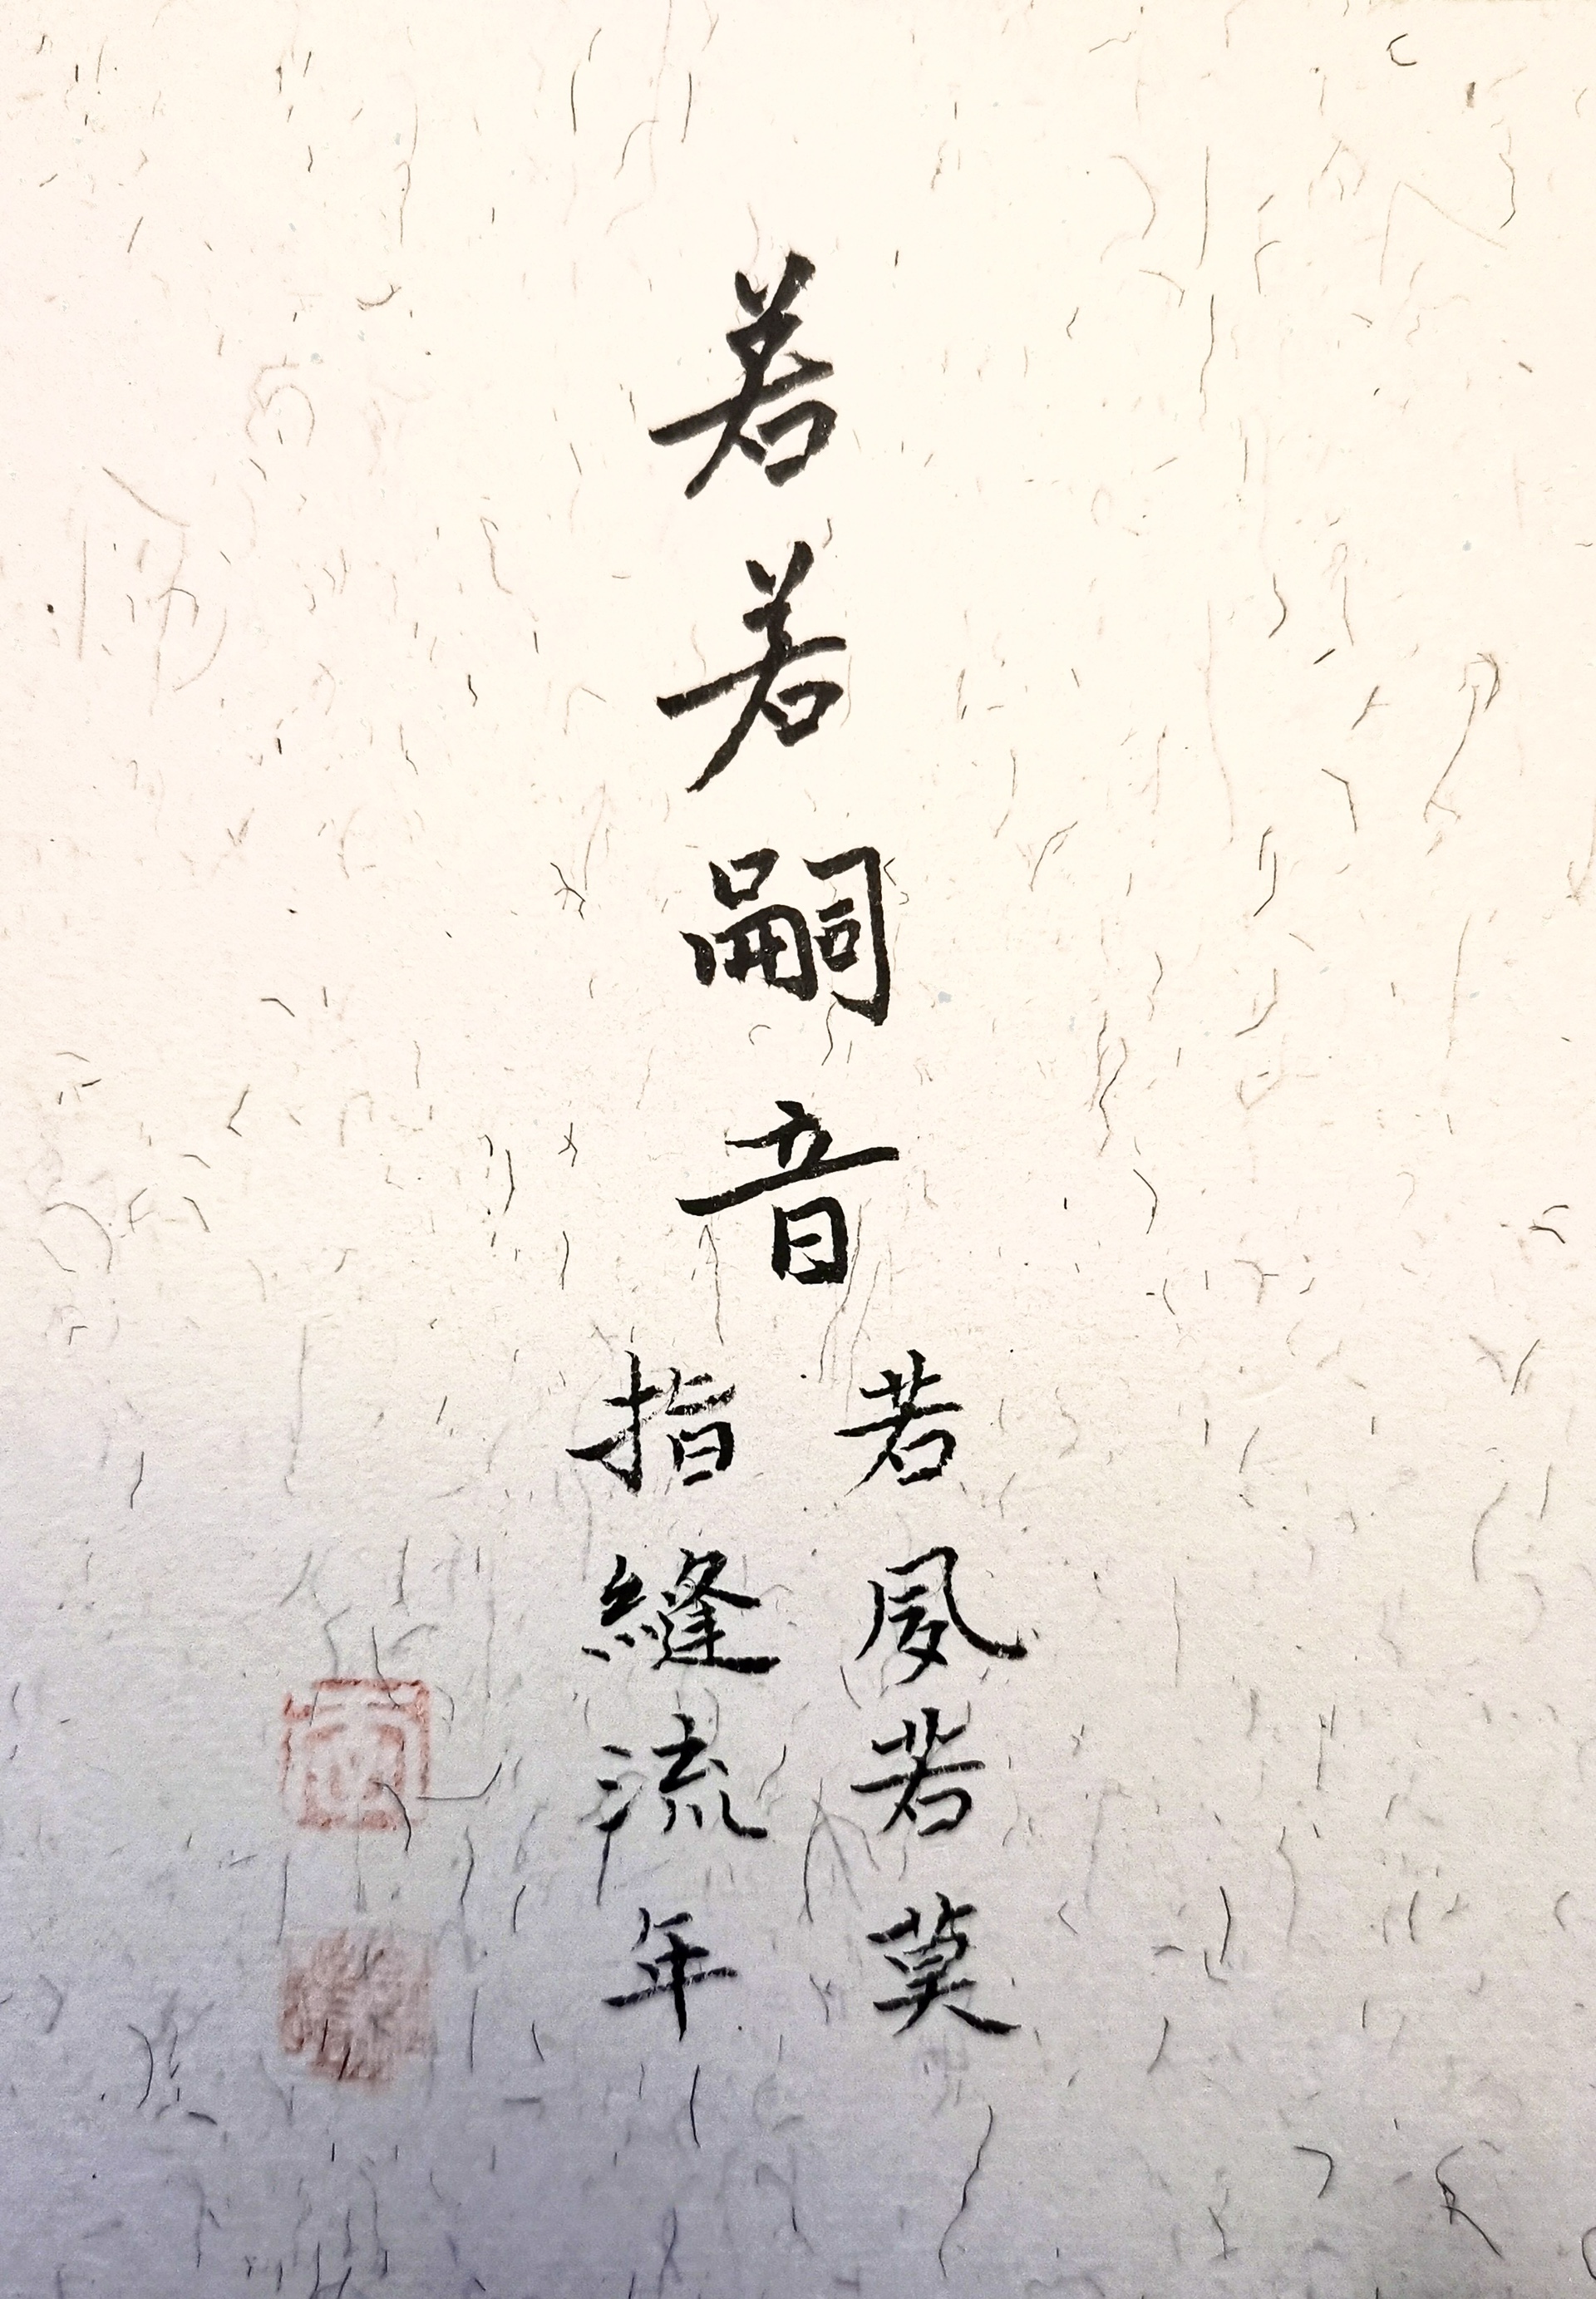 若若嗣音
若夙若莫
指縫流年